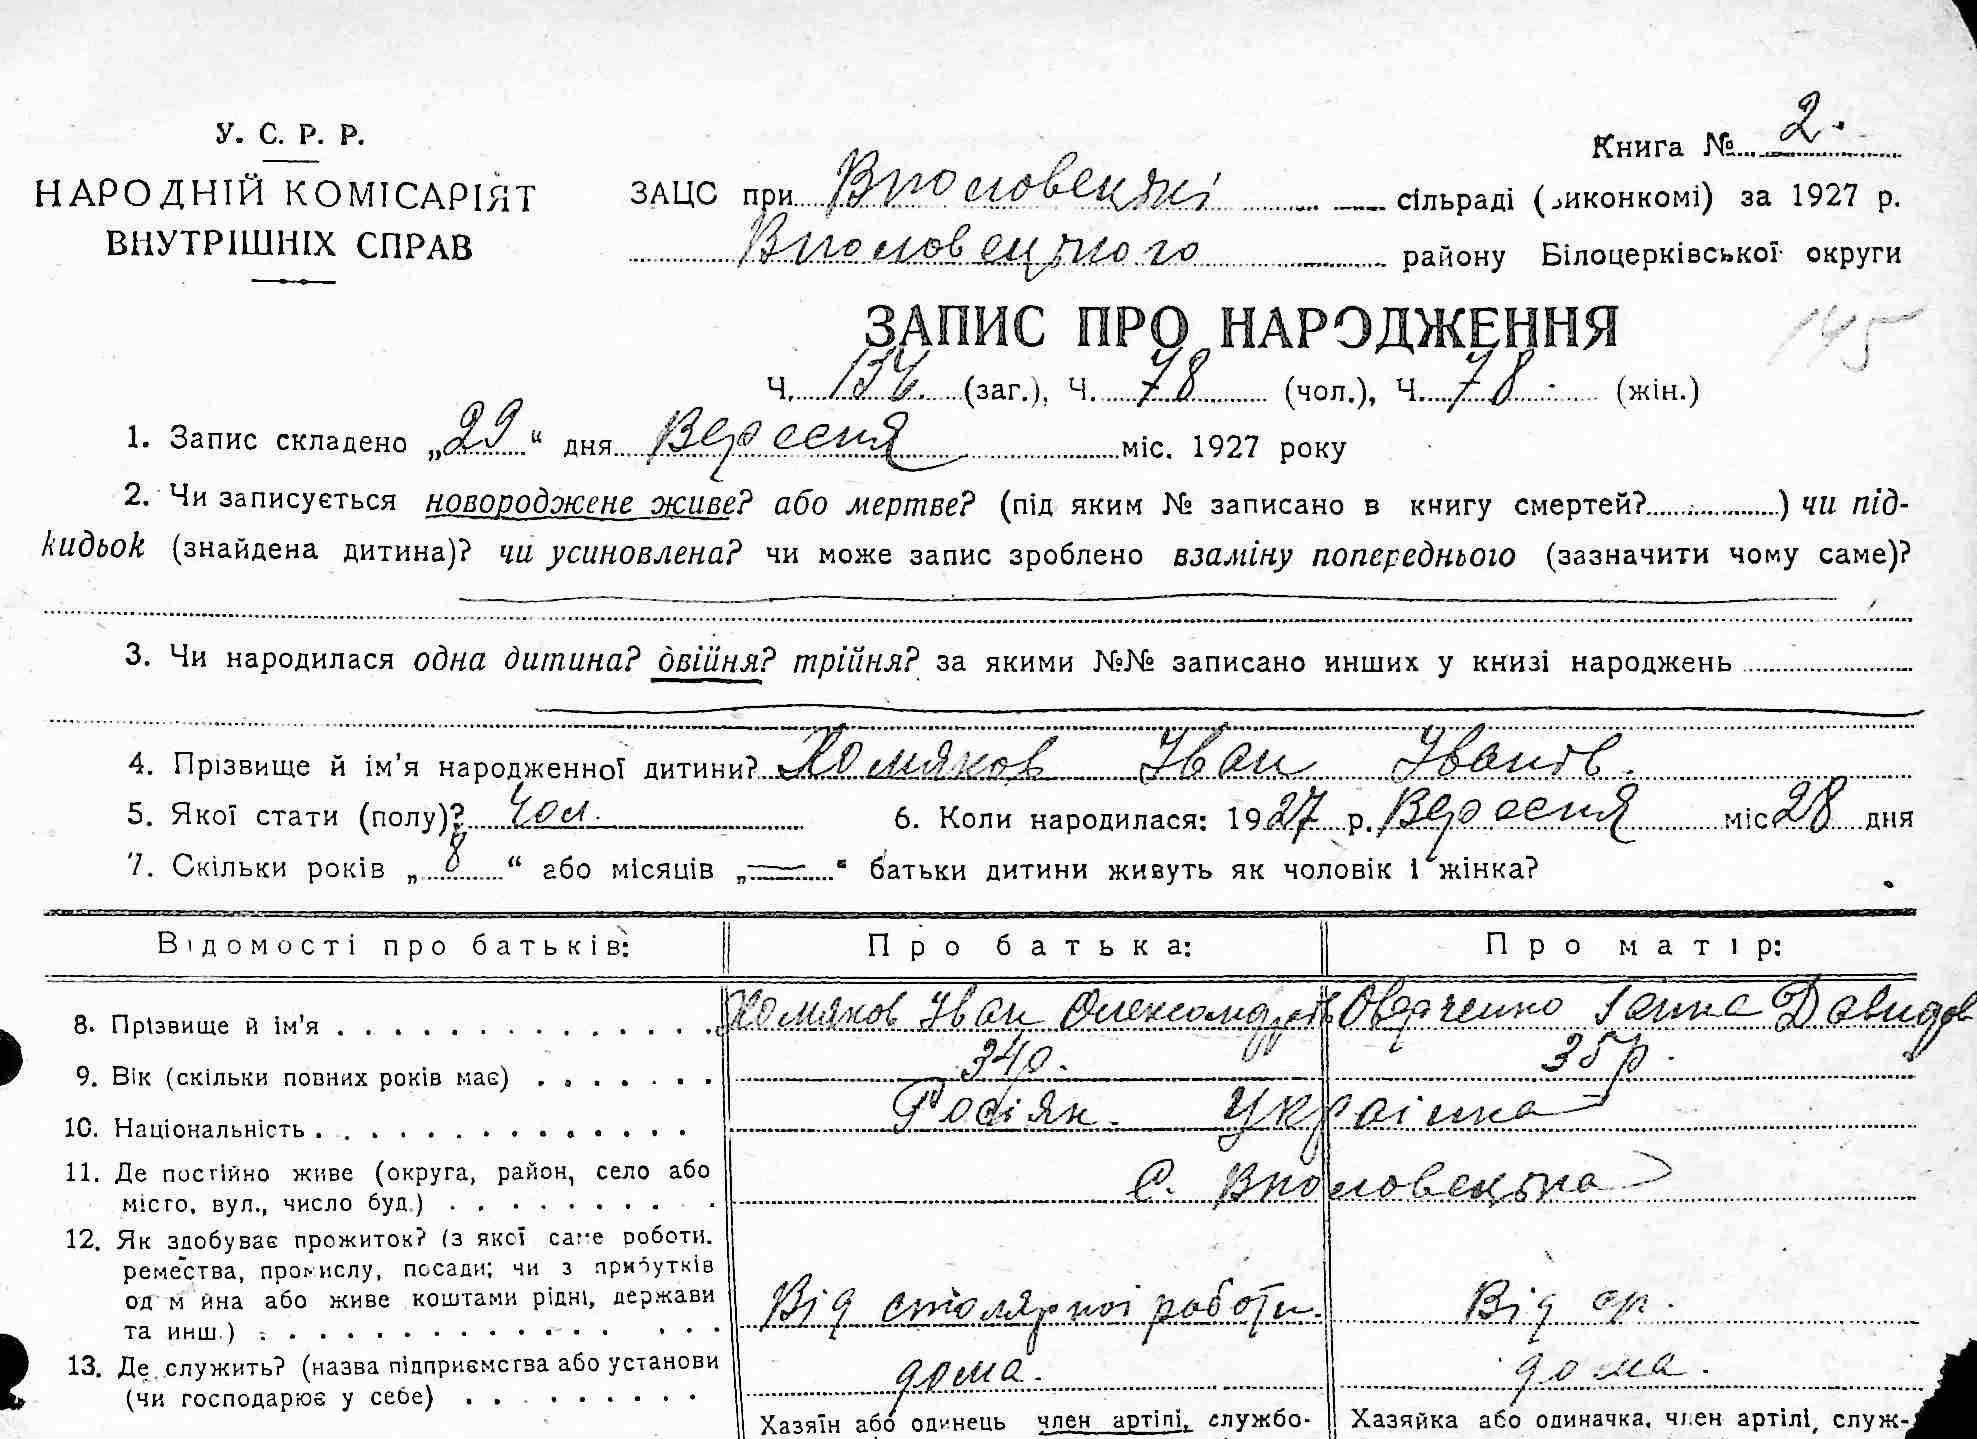 У. С. Р. Р.
НАРОДНІЙ КОМІСАРІЯТ
ВНУТРІШНІХ СПРАВ
Книга № 2.
ЗАЦС при Вполовецькі сільраді (виконкомі) за 1927 р.
Вполовецького району Білоцерківської округи
ЗАПИС ПРО НАРОДЖЕННЯ
145
Ч. (заг.), Ч. 78 (чол.), Ч. 78 (жін.)
1. Запис складено „29“ дня Вересня міс. 1927 року
2. Чи записується новороджене живе? або мертве? (під яким № записано в книгу смертей?..........) чи під-
кидьок (знайдена дитина)? чи усиновлена? чи може запис зроблено взаміну попереднього (зазначити чому саме)?
3. Чи народилася одна дитина? двійня? трійня? за якими №№ записано инших у книзі народжень
4. Прізвище й ім'я народженної дитини? Хомяков Іван Іванів.
5. Якої стати (полу)? Чол. 6. Коли народилася: 1927 р. Вересня міс 28 дня
7. Скільки років „8“ або місяців „—“ батьки дитини живуть як чоловік і жінка?
Відомості про батьків: Про батька: Про матір:
8. Прізвище й ім'я Хомяков Іван Олександрів Овдієнко Ганна Давидов
9. Вік (скільки повних років має) 34р. 35р.
10. Національність Росіян. Українка
11. Де постійно живе (округа, район, село або
місто, вул., число буд.) С. Вполовецька
12. Як здобуває прожиток? (з якої саме роботи,
ремества, промислу, посади; чи з прибутків
од майна або живе коштами рідні, держави
та инш.) Від столярної роботи. Від ср.
13. Де служить? (назва підприємства або установи
(чи господарює у себе) дома. дома.
Хазяїн або одинець член артілі, службо- Хазяйка або одиначка, член артілі, служ-